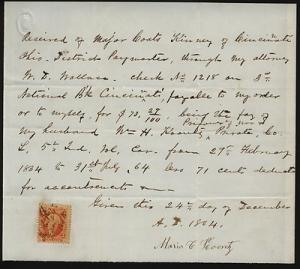 Received of Major Coats Kinney of Cincinnati
Ohio. District Paymaster, through my attorney
W. D. Wallace. check No 1218 on 2nd
National Bk Cincinnati, payable to my order
or to myself, for $ 73, /100 being the pay of
Prisoner of war
my husband Wm H. Koontz, Private, Co.
L, 5th Ind. Vol. Cav. from 29th February
1864 to 31st July, 64 less 71 cents deducted
for accoutrements
Given this 24th day of December
A. D. 1864.
Maria C Koontz